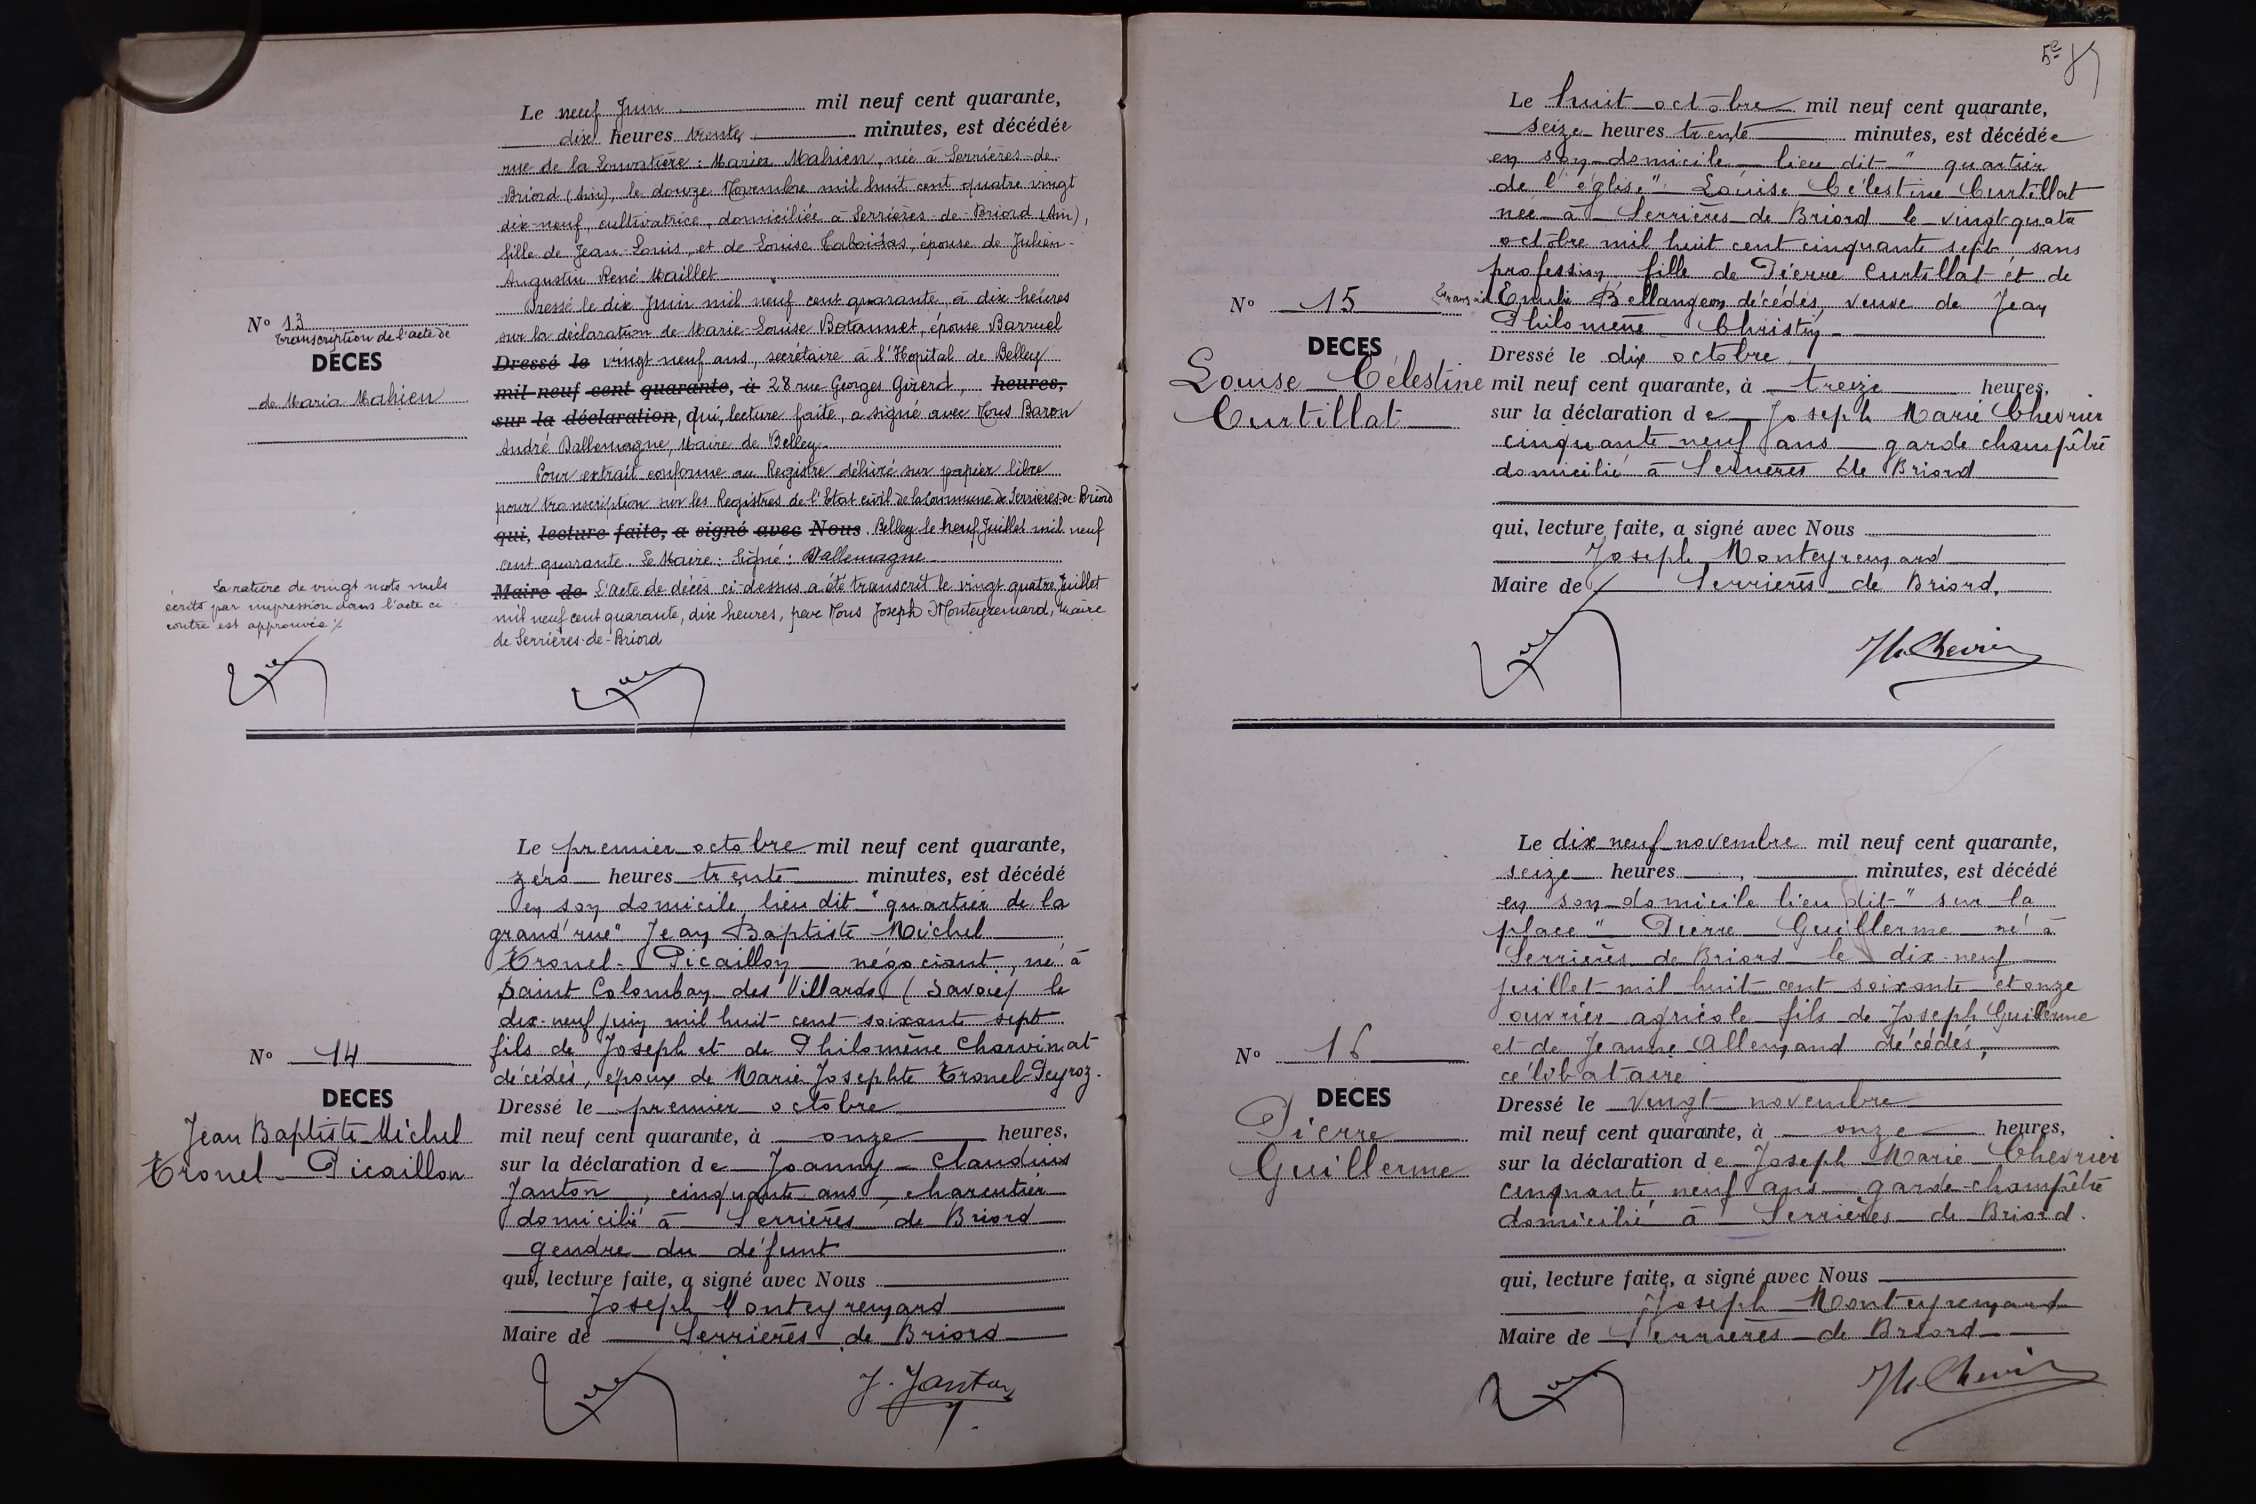 Le neuf Juin mil neuf cent quarante,
dix heures trente, minutes, est décédée
rue de la Louvatière : Maria Mahien, née à Serrières-de-
Briord (Ain), le douze Novembre mil huit cent quatre vingt
dix-neuf, cultivatrice, domiciliée à Serrières-de-Briord (Ain),
fille de Jean-Louis, et de Louise, épouse de Julien-
Augustin René Maillet
Dressé le dix Juin mil neuf cent quarante, à dix heures
sur la déclaration de Marie-Louise Botannet, épouse Barruel
Dressé le vingt neuf ans, secrétaire à l'Hopital de Belley
mil neuf cent quarante, à 28 rue Georges Girerd, heures,
sur la déclaration, qui, lecture faite, a signé avec Nous Baron
André Dallemagne, Maire de Belley.
Pour extrait conforme au Registre délivré sur papier libre
pour transcription sur les Registres de l'Etat civil de la Commune de Serrières-de-Briord
qui, lecture faite, a signé avec Nous. Belley le neuf Juillet mil neuf
cent quarante. Le Maire : Signé : Dallemagne
Maire de L'acte de décès ci-dessus a été transcrit le vingt quatre Juillet
mil neuf cent quarante, dix heures, par Nous Joseph Monteyremard, Maire
de Serrières-de-Briord
N° 13
transcription de l'acte de
DÉCÈS
de Maria Mahien
La rature de vingt mots nuls
écrits par impression dans l'acte ci-
contre est approuvée ./.
Le premier octobre mil neuf cent quarante,
zéro heures trente minutes, est décédé
en son domicile, lieu dit "quartier de la
grand'rue" Jean Baptiste Michel
Tronel-Picaillon négociant, né à
Saint Colomban des Villards (Savoie) le
dix-neuf juin mil huit cent soixante sept
fils de Joseph et de Philomène Charvinat
décédés, époux de Marie Josephte Tronel-Peyroz.
Dressé le premier octobre
mil neuf cent quarante, à onze heures,
sur la déclaration de Joanny-Claudius
Janton, cinquante ans, charcutier
domicilié à Serrières de Briord
gendre du défunt
qui, lecture faite, a signé avec Nous
Joseph Monteyremard
Maire de Serrières de Briord
N° 14
DECES
Jean Baptiste Michel
Tronel-Picaillon
J. Janton
5e
Le huit octobre mil neuf cent quarante,
seize heures trente minutes, est décédée
en son domicile lieu dit "quartier
de l'église" Louise Célestine Curtillat
née à Serrières de Briord le vingt-quatre
octobre mil huit cent cinquante sept sans
profession fille de Pierre Curtillat et de
Emilie Bellangeon décédés, veuve de Jean
Philomène Christin
Dressé le dix octobre
mil neuf cent quarante, à treize heures,
sur la déclaration de Joseph Marie Chevrier
cinquante neuf ans garde champêtre
domicilié à Serrières de Briord
qui, lecture faite, a signé avec Nous
Joseph Monteyremard
Maire de Serrières de Briord.
N° 15
DECES
Louise Célestine
Curtillat
Le dix-neuf novembre mil neuf cent quarante,
seize heures, minutes, est décédé
en son domicile lieu dit "sur la
place" Pierre Guillerme né à
Serrières de Briord le dix-neuf
juillet mil huit cent soixante et onze
ouvrier agricole fils de Joseph Guillerme
et de Jeanne Allemand décédés,
célibataire
Dressé le vingt novembre
mil neuf cent quarante, à onze heures,
sur la déclaration de Joseph Marie Chevrier
cinquante neuf ans garde-champêtre
domicilié à Serrières de Briord.
qui, lecture faite, a signé avec Nous
Joseph Monteyremard
Maire de Serrières de Briord
N° 16
DECES
Pierre
Guillerme